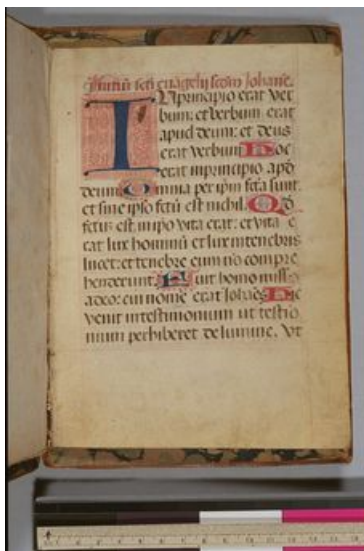 Initiũ sc̃i euãgelij scḋm Johane.
IN principio erat ver
bum: et verbum erat
apud deum: et deus
erat verbum Hoc
erat in principio apḋ
deum Omnia per ip̃m fc̃a sunt
et sine ipso fc̃ũ est nichil. Qḋ
fc̃ũ est in ip̃o vita erat: et vita e
rat lux hominũ et lux in tenebris
lucet: et tenebre eum nõ compre
henderunt. Fuit homo miss9
a deo: cui nomẽ erat Johãẽs Hic
venit in testimonium ut testio
nium perhiberet de lumine. Vt